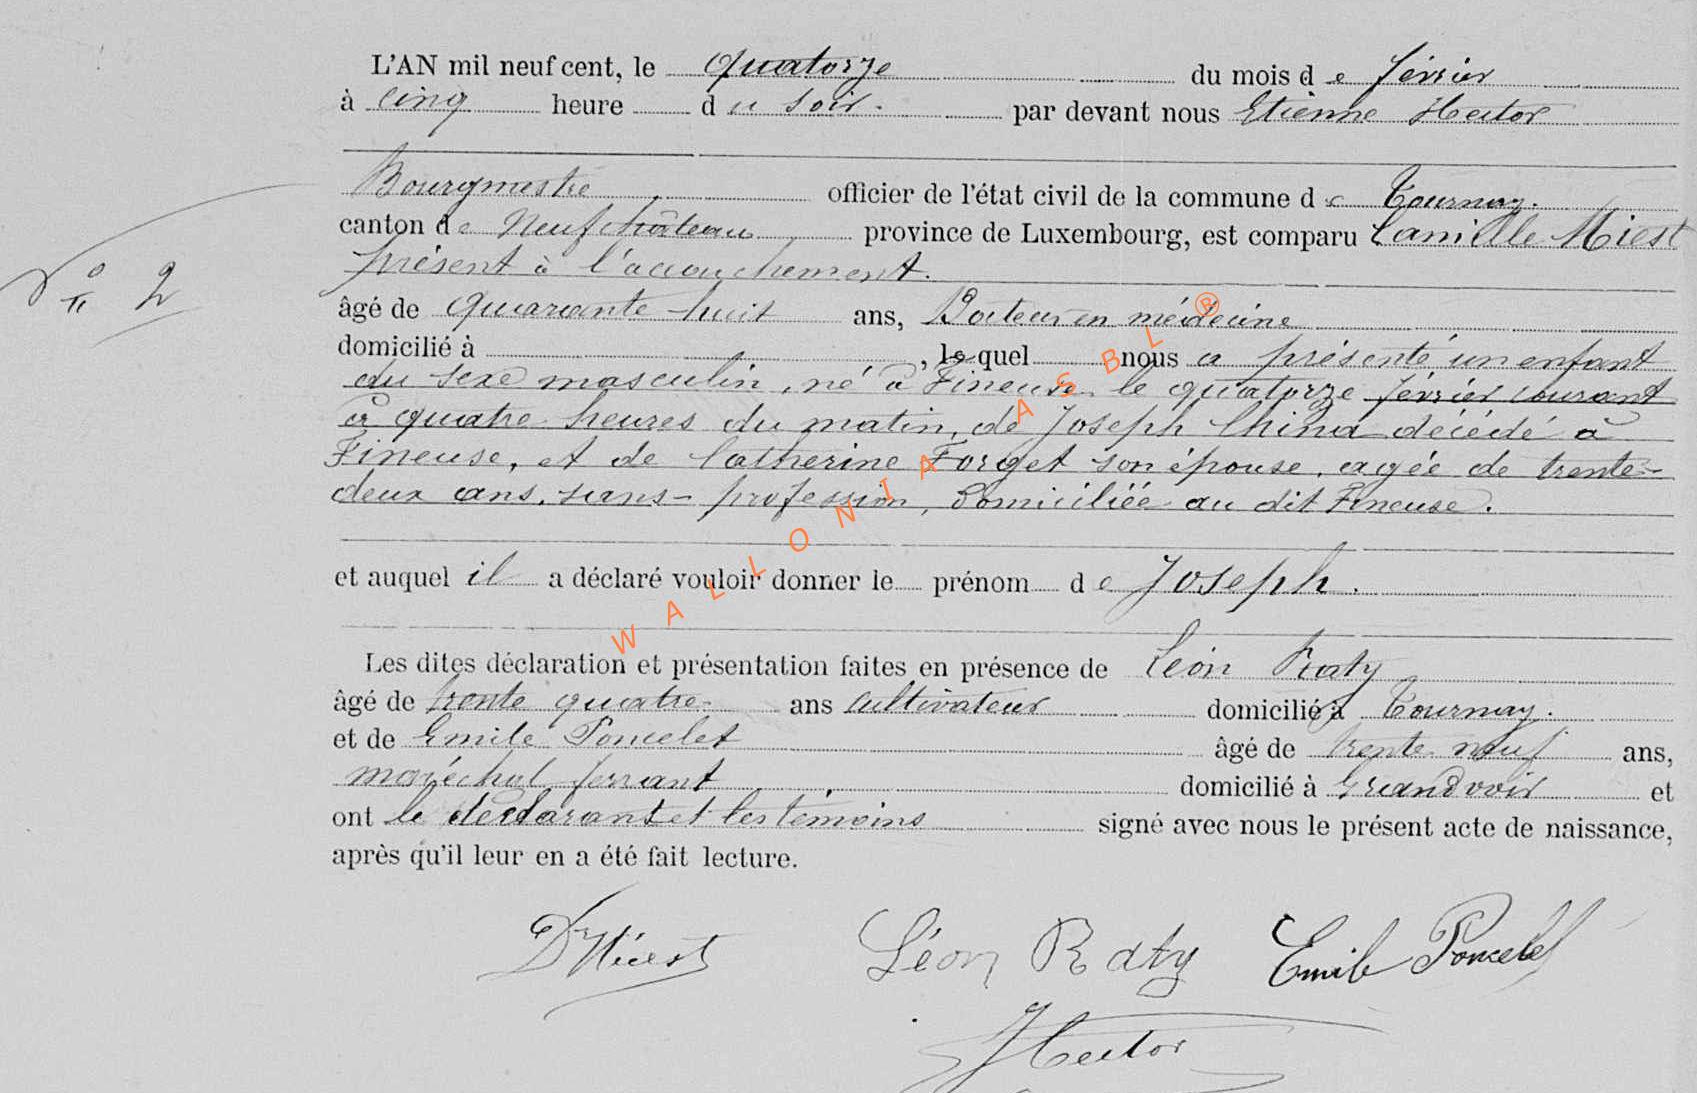 L'AN mil neuf cent, le quatorze du mois de février
à cinq heure du soir. par devant nous Etienne Hector
Bourgmestre officier de l'état civil de la commune de Tournay.
canton de Neufchâteau province de Luxembourg, est comparu Camille
présent à l'accouchement.
N° 2
âgé de quarante huit ans, Docteur en médecine
domicilié à , lequel nous a présenté un enfant
du sexe masculin, né à Fineuse le quatorze février courant
à quatre heures du matin, de Joseph China décédé à
Fineuse, et de Catherine Forget son épouse, agée de trente-
deux ans, sans profession, domiciliée au dit Fineuse.
et auquel il a déclaré vouloir donner le prénom de Joseph.
Les dites déclaration et présentation faites en présence de Léon Raty
âgé de trente quatre ans cultivateur domicilié à Tournay.
et de Emile Poncelet âgé de trente neuf ans,
maréchal ferrant domicilié à Grandvoir et
ont le déclarant et les témoins signé avec nous le présent acte de naissance,
après qu'il leur en a été fait lecture.
Léon Raty Emile Poncelet
Hector
WALLONIA ASBL ®